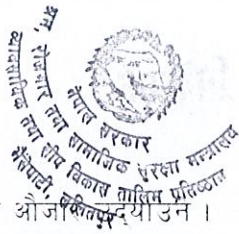 नेपाल सरकार
श्रम, रोजगार तथा सामाजिक सुरक्षा मन्त्रालय
व्यावसायिक तथा सीप विकास तालिम प्रतिष्ठान
भैंसेपाटी, ललितपुर
औजार उद्यौाउन ।